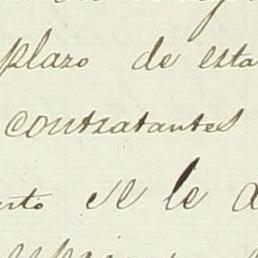 plazo de esta
contratantes
nto se le a